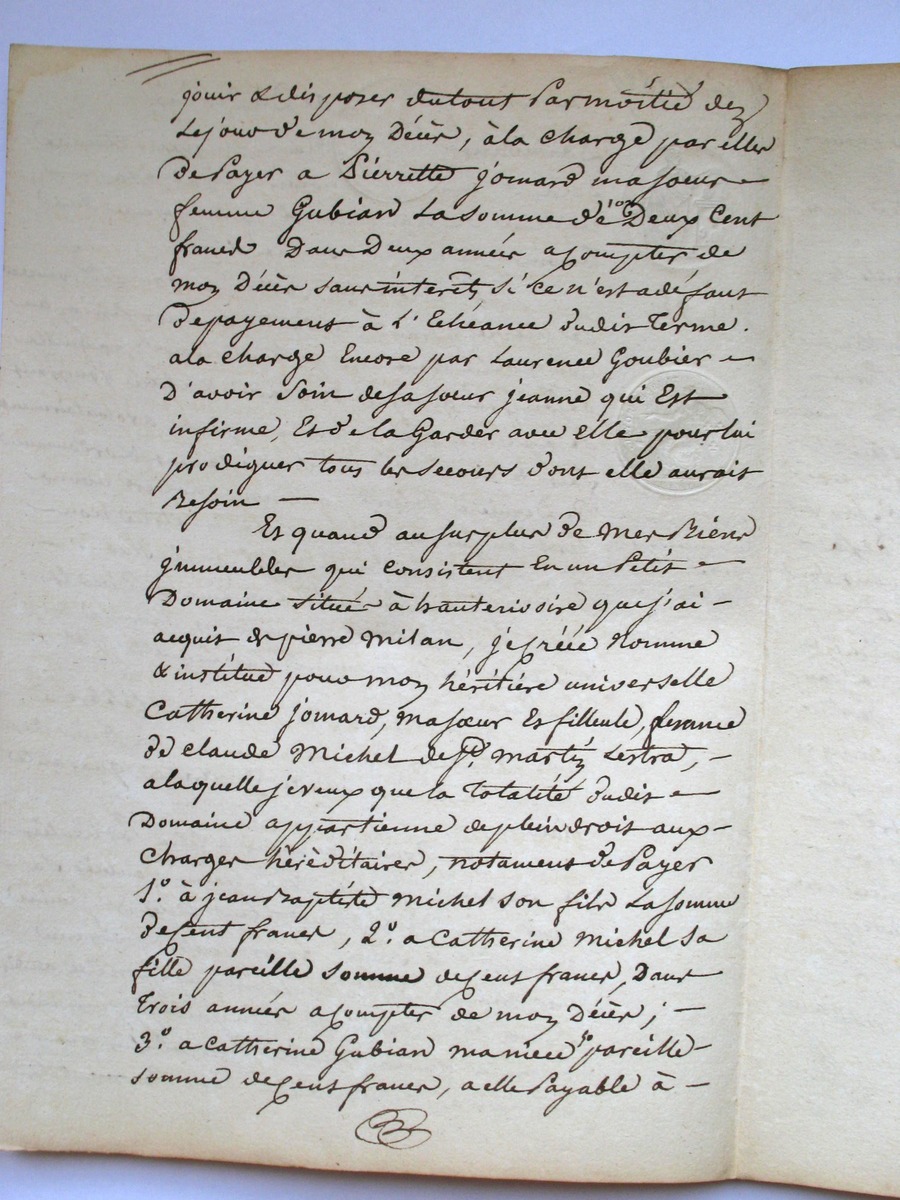 jouir & disposer du tout par moitié dez
le jour de mon Décès, à la charge par elles
de payer a Pierrette jomard ma soeur
femme Gubian la somme de Deux Cent
francs Dans Deux années a compter de
mon Décès sans interêts, si ce n'est a défaut
de payement à l'Echéance dudit terme.
a la charge Encore par Laurence Goubier
D'avoir soin de sa soeur jeanne qui Est
infirme, Et de la Garder avec elle pour lui
prodiguer tous les secours dont elle aurait
Besoin
Et quand au surplus de mes Biens
jmmeubles qui consistent En un Petit
Domaine situé à hauterivoire que j'ai
acquis de pierre Milan, je créée nomme
& institue pour mon héritière universelle
Catherine jomard, ma soeur Et filleule, femme
de Claude Michel de St. Martin Lestra,
a laquelle je veux que la totalité dudit
Domaine appartienne de plein droit aux
Charges héréditaires, notament de Payer
1.° à jean Baptiste Michel son fils la somme
de Cent francs, 2.° a Catherine Michel sa
fille pareille somme de Cent francs, Dans
Trois années a compter de mon Décès;
3.° a Catherine Gubian ma niece pareille
somme de Cent francs, a elle Payable à